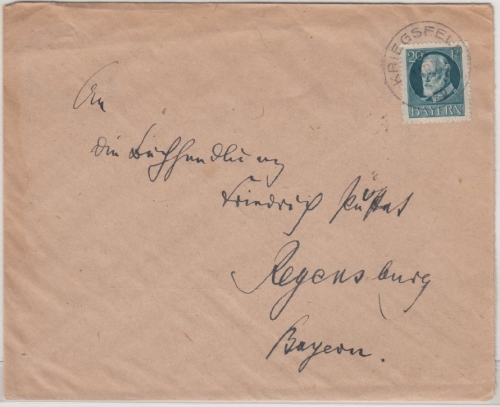 KRIEGSFEL
20
BAYERN
An
die Buchhandlung
Friedrich Pustet
Regensburg
Bayern.